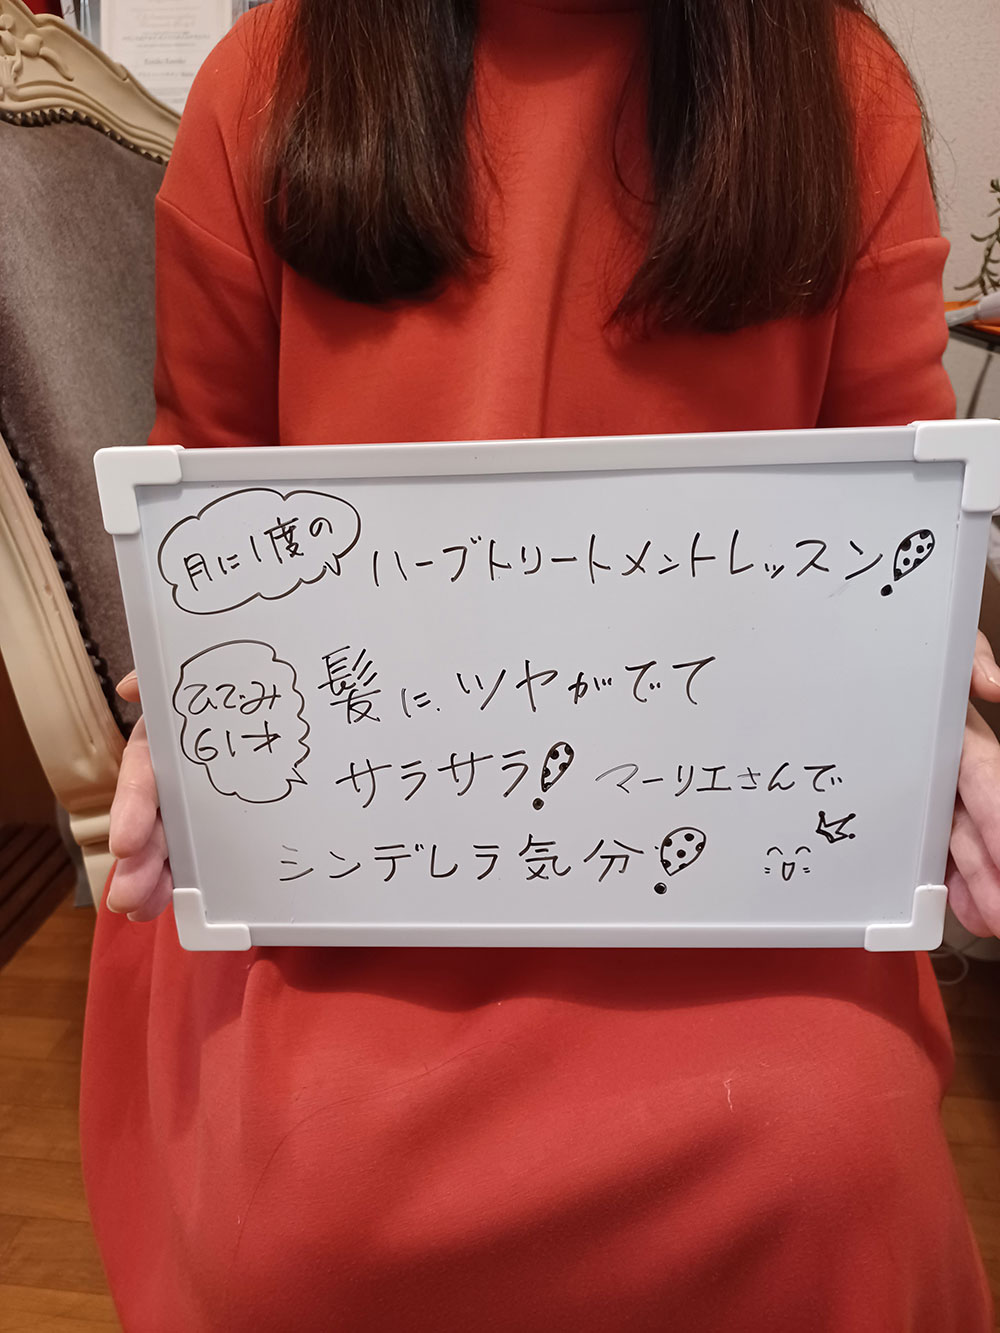 月に1度の
ハーブトリートメントレッスン!
ひでみ
61才
髪に、ツヤがでて
サラサラ! マーリエさんで
シンデレラ気分!